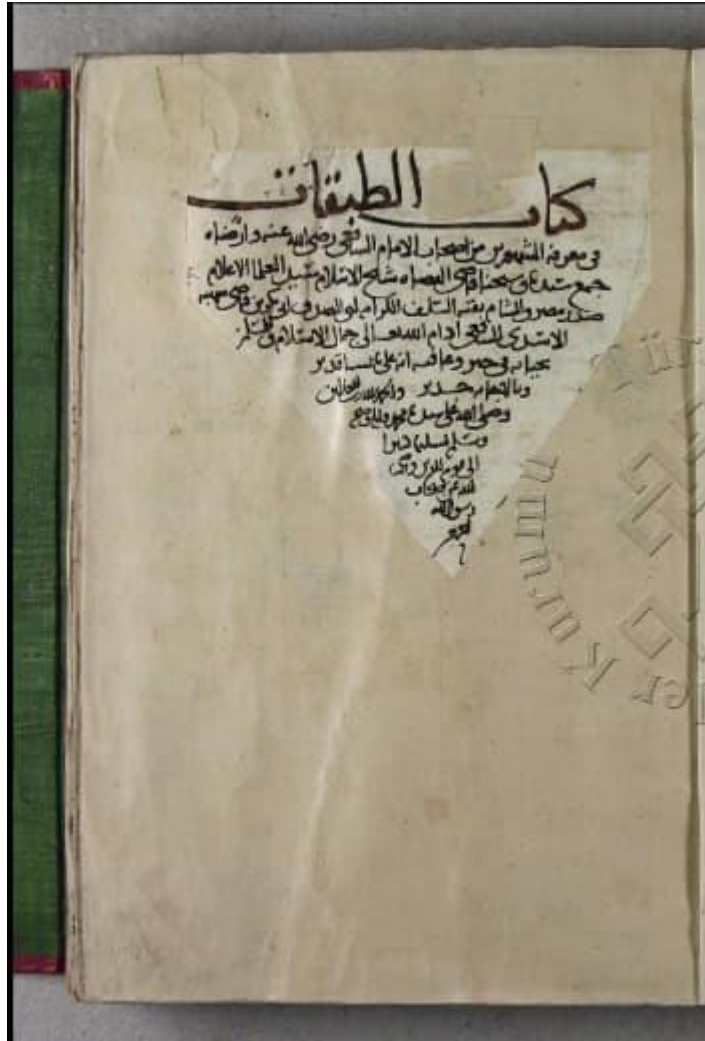 كتاب الطبقات
في معرفة المشهورين من اصحاب الامام الشافعي رضي الله عنه وارضاه
جمع سيدنا وشيخنا قاضي القضاه شيخ الاسلام العلما الاعلام
صدر مصر والشام بقية السلف الكرام ابي الصدق ابي بكر بن قاضي شهبه
الاسدي الشافعي ادام الله تعالى جمال الاسلام
بحياته في خير وعافيه انه على ما يشا قدير
وبالاجابه جدير والحمد لله رب العالمين
وصلى الله على سيدنا محمد واله
وسلم تسليما كثيرا
الى يوم الدين
رسول الله